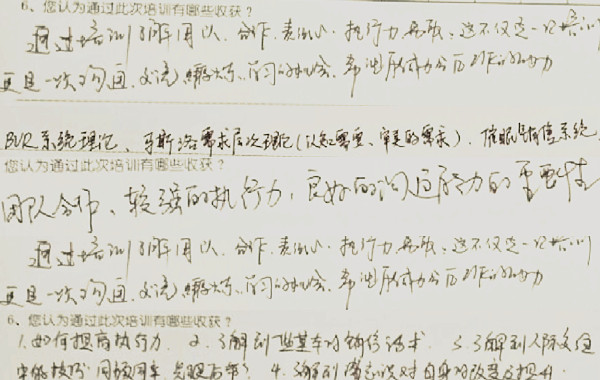 6、您认为通过此次培训有哪些收获?
通过培训了解用心、合作、责任心、执行力 这不仅是一次培训
更是一次沟通、交流、锻炼、学习的机会、希望 今后工作的动力
BVR系统理论、马斯洛需求层次理论(认知需要、审美的需求)、催眠销售系统
您认为通过此次培训有哪些收获?
团队合作、较强的执行力、良好的沟通能力的重要性
通过培训了解用心、合作、责任心、执行力 这不仅是一次培训
更是一次沟通、交流、锻炼、学习的机会、希望 今后工作的动力
6、您认为通过此次培训有哪些收获?
1.如何提高执行力 2.了解到一些基本的销售话术 3.了解到人际交往
中的技巧 4.了解到 意识对自身的改变与提升